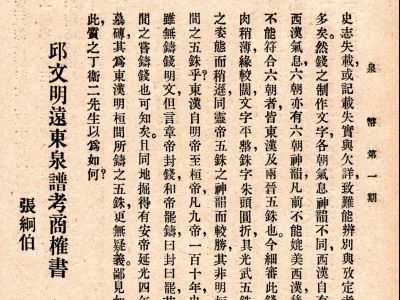 泉幣第一期
史志失載,或記載失實與欠詳,致難能辨別與攷定者
多矣。然錢之制作文字,各朝氣息神韻不同,西漢自有
西漢氣息,六朝亦有六朝神韻,凡前不能媲美西漢,後
不能符合六朝者,皆東漢及兩晉五銖也。今細審此錢,
肉稍薄,緣較闊,文字平整,銖字朱頭圓折,具光武五銖
之姿態而稍遜,同靈帝五銖之神韻而較勝,其非明桓
間之五銖乎?東漢自明帝至桓帝,凡九帝,一百十年,史
雖無鑄錢明文,但言章帝封錢,和帝罷鑄,曰封曰罷,其
間之嘗鑄錢也可知矣。且同地掘得有安帝延光四年
墓磚,其爲東漢明桓間所鑄之五銖,更無疑義。鄙見如
此,質之丁衛二先生以爲如何?
邱文明遠東泉譜考商榷書
張絅伯